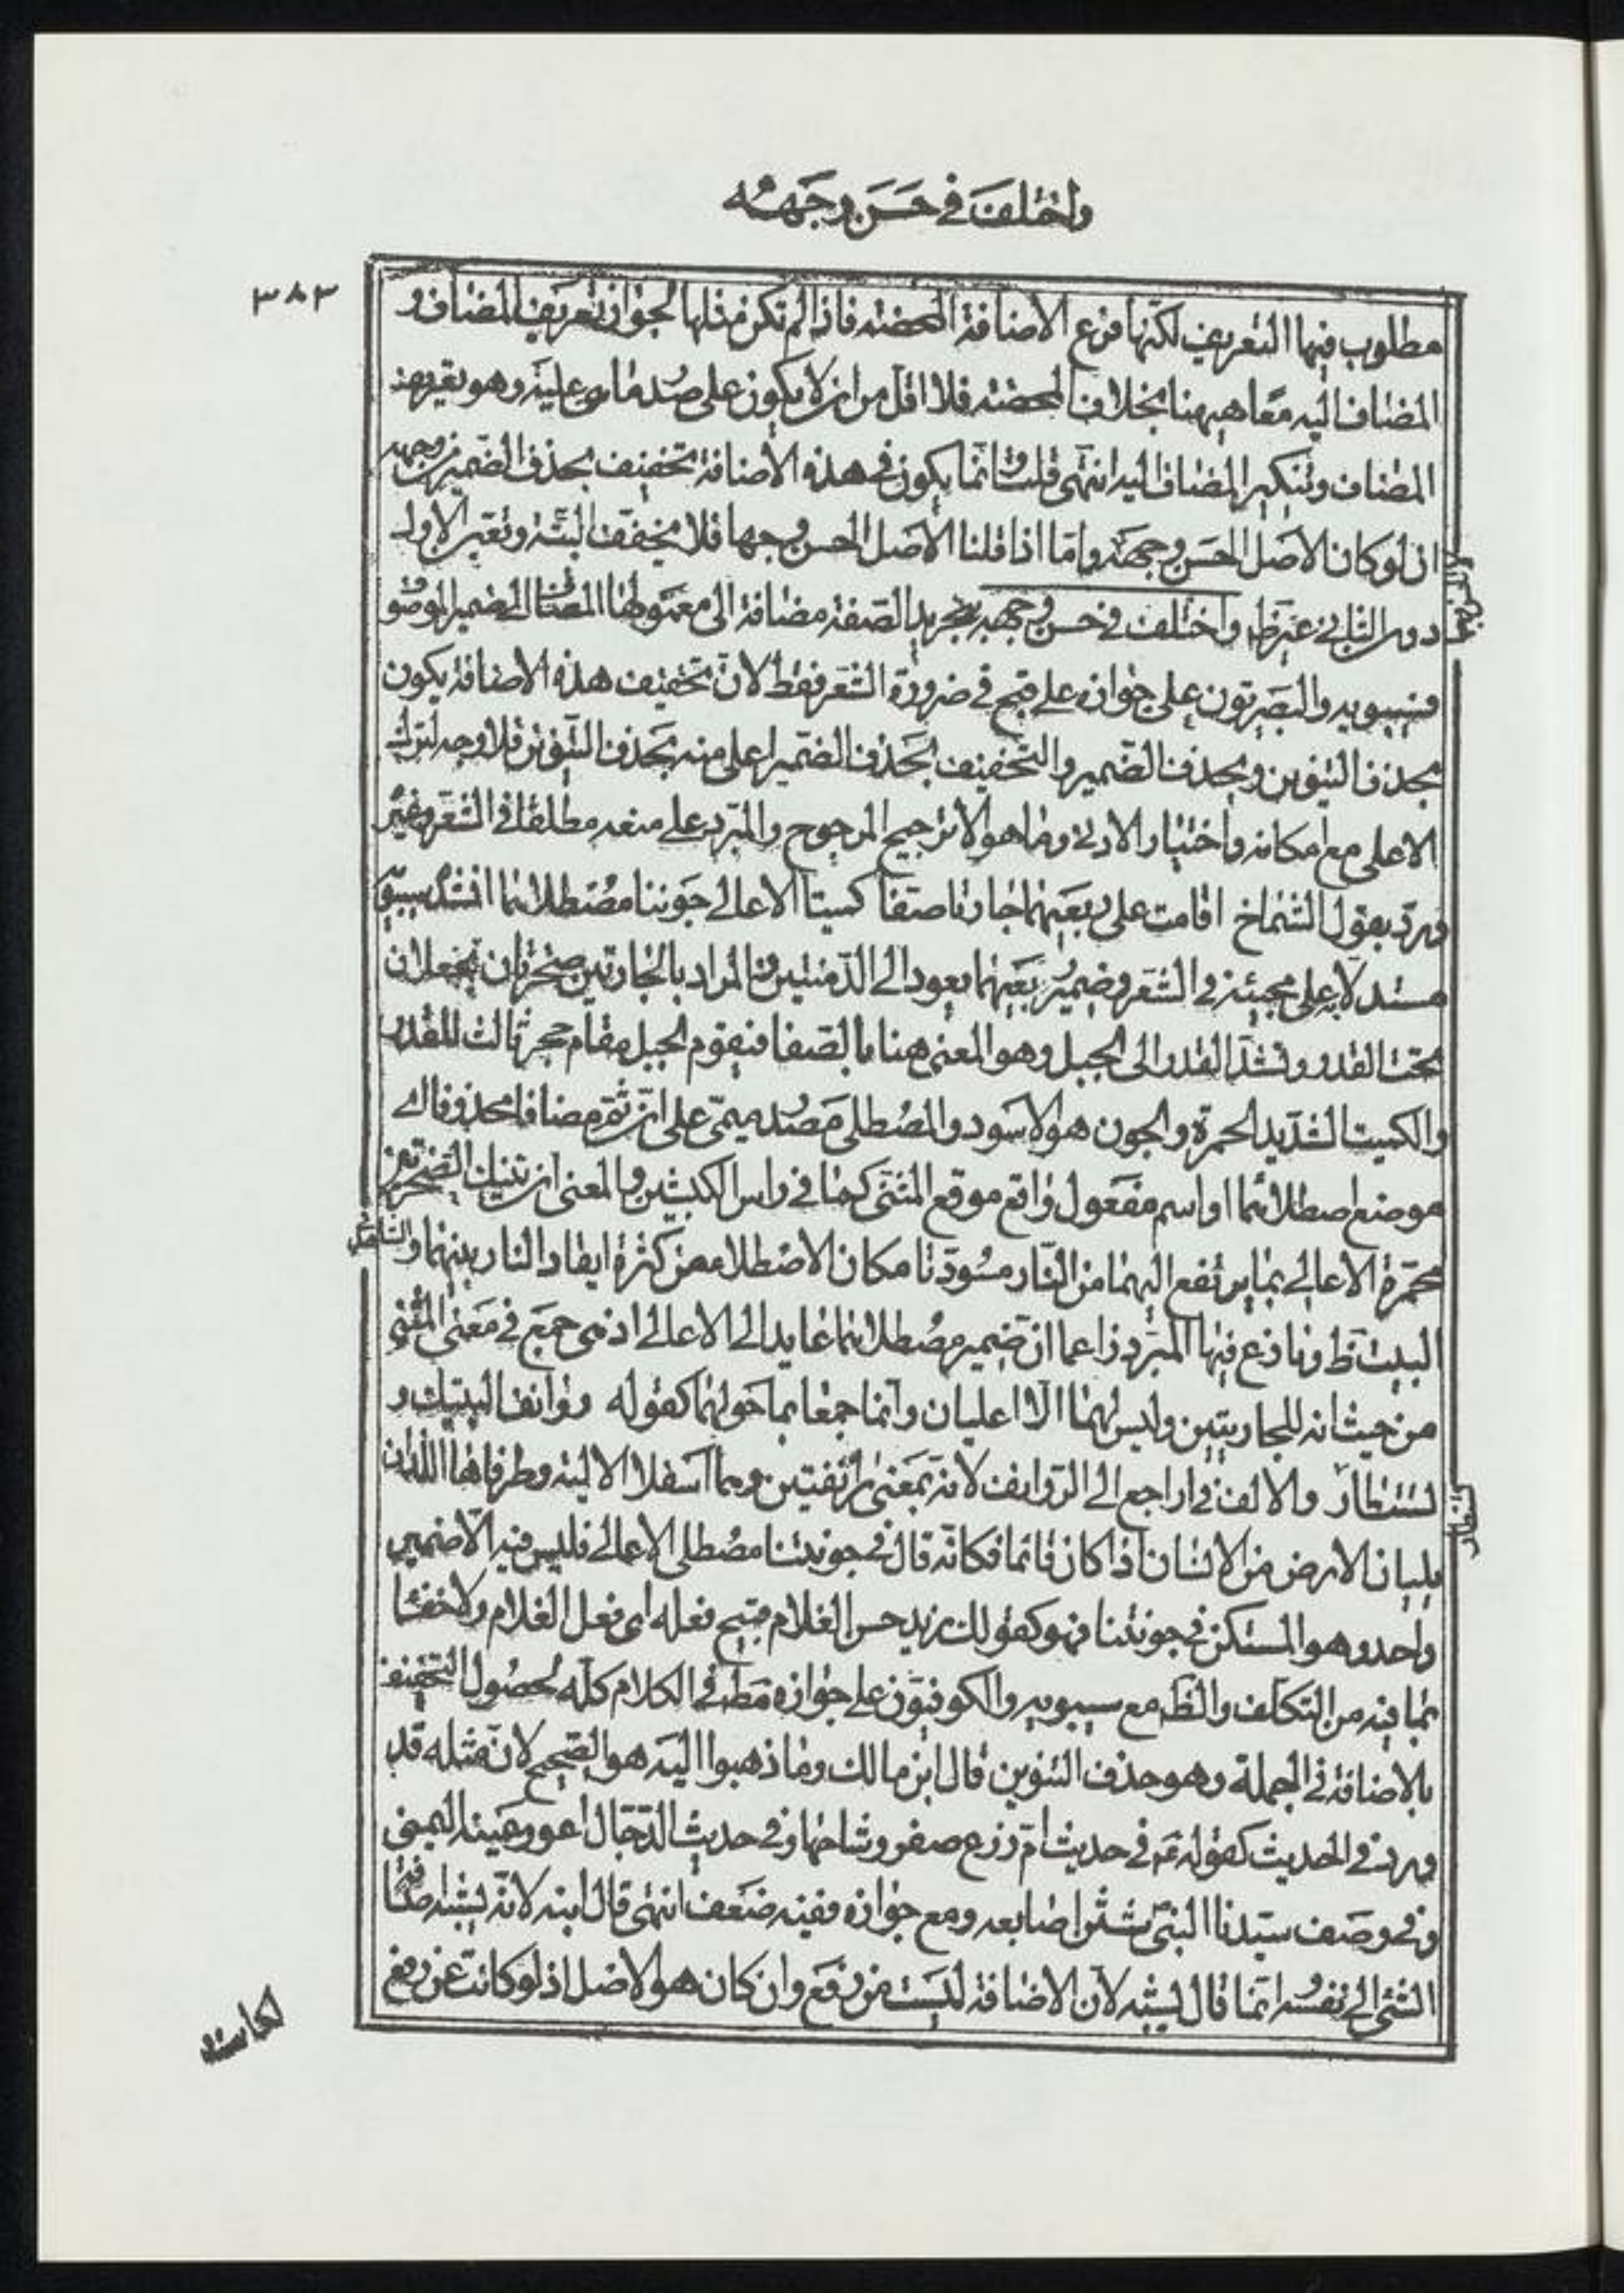 واختلف في حسن وجهه
٣٨٣
مطلوب فيها التعريف لكنها فرع الاضافة المحضة فاذا لم تكن مثلها لجواز تعريف المضاف و
المضاف اليه معا هيهنا بخلاف المحضة فلا اقل من ان لا يكون على ضد ما هي عليه وهو تعريف
المضاف وتنكير المضاف اليه انتهى قلت وانما يكون في هذه الاضافة تخفيف بحذف الضمير من وجهه
ان لو كان الاصل الحسن وجهه واما اذا قلنا الاصل الحسن وجها فلا مخفف البتة وتعبير الاول
دون الثاني غير ظ واختلف في حسن وجهه بتجريد الصفة مضافة الى معمولها المضاف الى ضمير الموصو
فسيبويه والبصريون على جوازه على قبح في ضرورة الشعر فقط لان تخفيف هذه الاضافة يكون
بحذف التنوين وبحذف الضمير والتخفيف بحذف الضمير اعلى منه بحذف التنوين فلا وجه لترك
الاعلى مع امكانه واختيار الادنى وما هو الا ترجيح المرجوح والمبرد على منعه مطلقا في الشعر وغير
ويرد بقول الشماخ اقامت على ربعيهما جارتا صفا كميتا الاعالي جونتا مصطلاهما انشده سيبويه
مستدلا به على مجيئه في الشعر وضمير ربعيهما يعود الى الدمنتين والمراد بالجارتين صخرتان تجعلان
تحت القدر وتسند القدر الى الجبل وهو المعنى هنا بالصفا فيقوم الجبل مقام حجر ثالث للقدر
والكميت الشديد الحمرة والجون هو الاسود والمصطلى مصدر ميمي على ان ثم مضافا محذوفا اي
موضع اصطلائهما او اسم مفعول واقع موقع المثنى كما في راس الكبشين والمعنى ان تينك الصخرتين
محمرة الاعالي بما يرتفع اليهما من النار مسودتا مكان الاصطلاء من كثرة ايقاد النار بينهما والشاهد في
البيت ظ ونازع فيها المبرد زاعما ان ضمير مصطلاهما عايد الى الاعالي اذ هي جمع في معنى المثنى
من حيث انه للجارتين وليس لهما الا اعليان وانما جمعا بما حولهما كقوله روانف اليتيك و
تستطارا والالف في راجع الى الروانف لانه بمعنى رانفتين وهما اسفلا الالية وطرفاها اللذان
يليان الارض من الانسان اذا كان قائما فكانه قال في جونتا مصطلى الاعالي فليس فيه الا ضمير
واحد وهو المستكن في جونتا فهو كقولك زيد حسن الغلام قبيح فعله اي فعل الغلام ولا خفاء
بما فيه من التكلف والظ مع سيبويه والكوفيون على جوازه مط في الكلام كله لحصول التخفيف
بالاضافة في الجملة وهو حذف التنوين قال ابن مالك وما ذهبوا اليه هو الصحيح لان مثله قد
ورد في الحديث كقوله في حديث ام زرع صفر وشاحها وفي حديث الدجال اعور عينه اليمنى
وفي وصف سيدنا النبي شثن اصابعه ومع جوازه ففيه ضعف انتهى قال ابنه لانه يشبه اضافة
الشئ الى نفسه انما قال يشبه لان الاضافة ليست من رفع وان كان هو الاصل اذ لو كانت عن رفع
لكانت